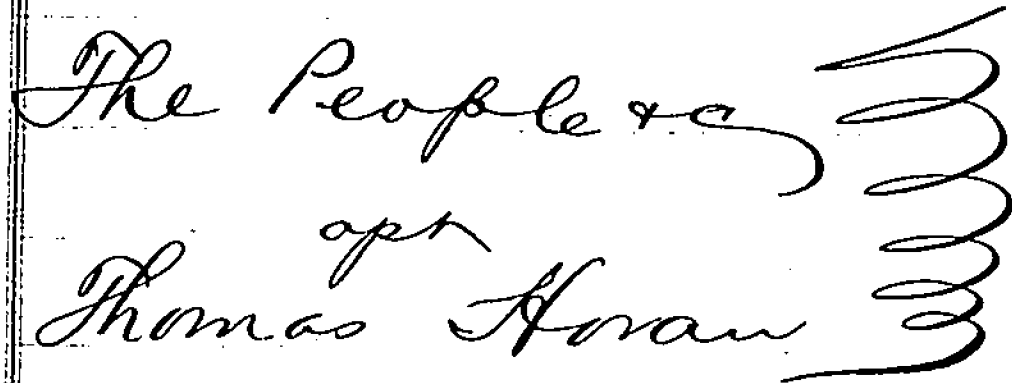 The People &c
agst
Thomas Horan